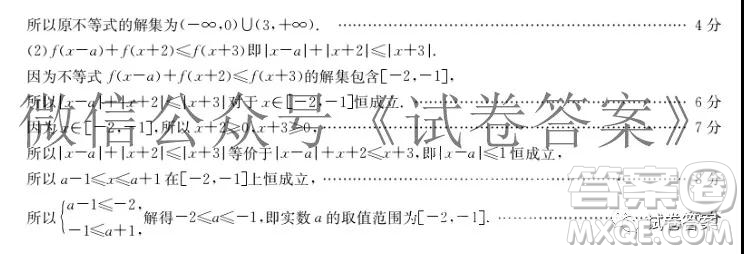 所以原不等式的解集为(-∞,0)∪(3,+∞). ………… 4 分
(2) f(x-a)+f(x+2)≤f(x+3)即|x-a|+|x+2|≤|x+3|.
因为不等式 f(x-a)+f(x+2)≤f(x+3)的解集包含[-2,-1],
所以|x-a|+|x+2|≤|x+3|对于x∈[-2,-1]恒成立. ………… 6 分
因为x∈[-2,-1],所以x+2≥0,x+3≥0. ………… 7 分
微信公众号《试卷答案》
所以|x-a|+|x+2|≤|x+3|等价于|x-a|+x+2≤x+3,即|x-a|≤1恒成立,
所以a-1≤x≤a+1在[-2,-1]上恒成立, ………… 8 分
答案圈
所以{a-1≤-2, -1≤a+1, 解得-2≤a≤-1,即实数a的取值范围为[-2,-1]. ………… 分
试卷答案
MXQE.COM